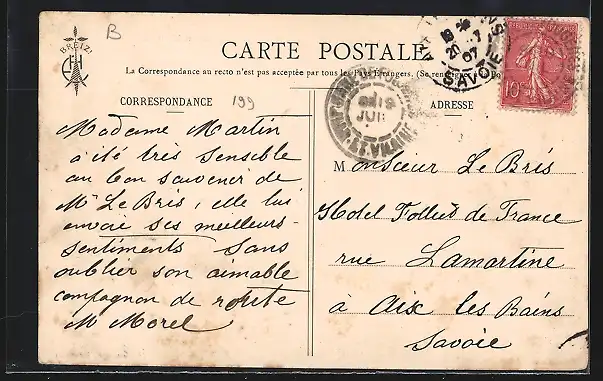 BREIZ
B
CARTE POSTALE
La Correspondance au recto n'est pas acceptée par tous les Pays Étrangers. (Se renseigner
CORRESPONDANCE
199
ADRESSE
Madame Martin
a été très sensible
au bon souvenir de
Mr Le Bris, elle lui
envoie ses meilleurs
sentiments sans
oublier son aimable
compagnon de route
M Morel
Monsieur Le Bris
Hotel Folliet de France
rue Lamartine
à Aix les Bains
Savoie
20 -7
07
SAVOIE
JUIL
ET-VILAINE
10c